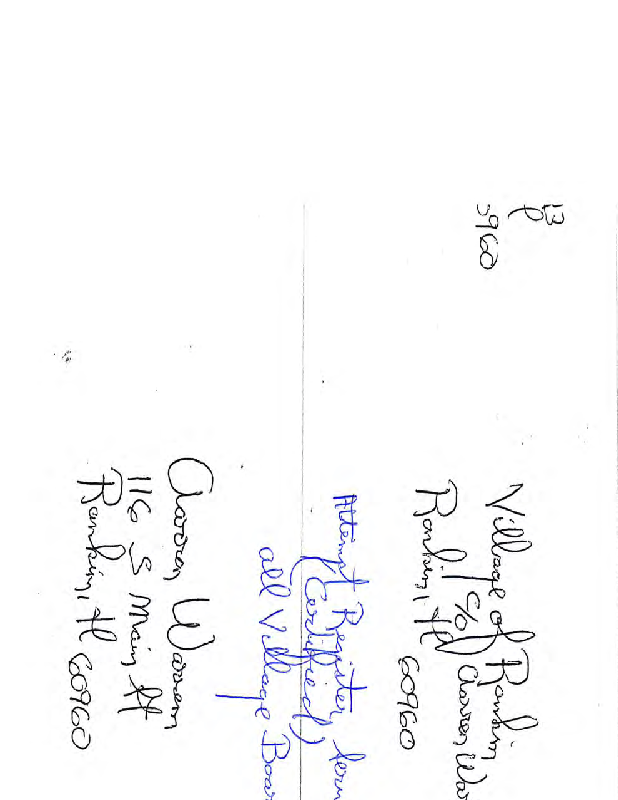 Village of Rankin
c/o Aaron Wa
Rankin, Il 60960
Attempt Register,
(Certified)
all Village Boar
Aaron Warren
116 S Main St
Rankin, Il 60960